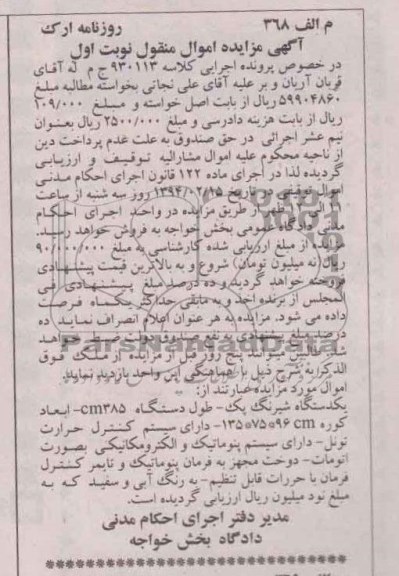 م الف ۳۶۸ روزنامه ارک
آگهی مزایده اموال منقول نوبت اول
در خصوص پرونده اجرایی کلاسه ۹۳۰۱۱۳ ج م له آقای
قربان آریان و بر علیه آقای علی نجاتی بخواسته مطالبه مبلغ
۵۹۹۰۴۸۶۰ ریال از بابت اصل خواسته و مبلغ ۱۰۹/۰۰۰
ریال از بابت هزینه دادرسی و مبلغ ۲۵۰۰/۰۰۰ ریال بعنوان
نیم عشر اجرائی در حق صندوق به علت عدم پرداخت دین
از ناحیه محکوم علیه اموال مشارالیه توقیف و ارزیابی
گردیده لذا در اجرای ماده ۱۲۲ قانون اجرای احکام مدنی
اموال توقیفی در تاریخ ۱۳۹۴/۰۲/۱۵ روز سه شنبه از ساعت
از طریق مزایده در واحد اجرای احکام
مدنی دادگاه عمومی بخش خواجه به فروش خواهد رسید.
مزایده از مبلغ ارزیابی شده کارشناسی به مبلغ ۹۰/۰۰۰/۰۰۰
ریال(نه میلیون تومان) شروع و به بالاترین قیمت پیشنهادی
فروخته خواهد گردید و ده درصد مبلغ پیشنهادی فی
المجلس از برنده اخذ و به مابقی حداکثر یکماه فرصت
داده می شود. مزایده به هر عنوان اعلام انصراف نماید ده
درصد مبلغ پیشنهادی به نفع صندوق دولت ضبط خواهد
شد. طالبین میتوانند پنج روز قبل از مزایده از ملک فوق
الذکر به شرح ذیل با هماهنگی این واحد بازدید نمایند
اموال مورد مزایده عبارتند از:
یکدستگاه شیرنگ پک- طول دستگاه cm۳۸۵- ابعاد
کوره ۱۳۵*۷۵*۹۶ cm- دارای سیستم کنترل حرارت
تونل- دارای سیستم پنوماتیک و الکترومکانیکی بصورت
اتومات- دوخت مجهز به فرمان پنوماتیک و تایمر کنترل
فرمان با حررات قابل تنظیم- به رنگ آبی و سفید که به
مبلغ نود میلیون ریال ارزیابی گردیده است.
مدیر دفتر اجرای احکام مدنی
دادگاه بخش خواجه
ParsNamadData